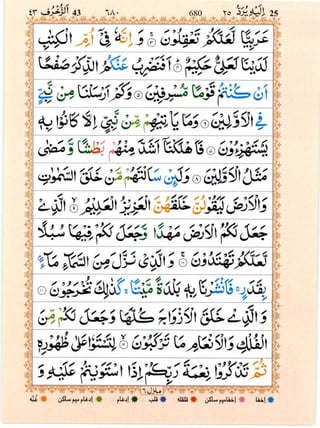 ٤٣ اَلزُّخْرُف 43 ٦٨٠ 680 ٢٥ اِلَيْهِ يُرَدُّ 25
عَرَبِيًّا لَّعَلَّكُمْ تَعْقِلُوْنَ ۞ وَ اِنَّهٗ فِیْۤ اُمِّ الْكِتٰبِ
لَدَیْنَا لَعَلِیٌّ حَكِیْمٌ ۞ اَفَنَضْرِبُ عَنْكُمُ الذِّكْرَ صَفْحًا
اَنْ كُنْتُمْ قَوْمًا مُّسْرِفِیْنَ ۞ وَ كَمْ اَرْسَلْنَا مِنْ نَّبِیٍّ
فِی الْاَوَّلِیْنَ ۞ وَ مَا یَاْتِیْهِمْ مِّنْ نَّبِیٍّ اِلَّا كَانُوْا بِهٖ
یَسْتَهْزِءُوْنَ ۞ فَاَهْلَكْنَاۤ اَشَدَّ مِنْهُمْ بَطْشًا وَّ مَضٰى
مَثَلُ الْاَوَّلِیْنَ ۞ وَ لَىِٕنْ سَاَلْتَهُمْ مَّنْ خَلَقَ السَّمٰوٰتِ
وَ الْاَرْضَ لَیَقُوْلُنَّ خَلَقَهُنَّ الْعَزِیْزُ الْعَلِیْمُ ۞ الَّذِیْ
جَعَلَ لَكُمُ الْاَرْضَ مَهْدًا وَّ جَعَلَ لَكُمْ فِیْهَا سُبُلًا
لَّعَلَّكُمْ تَهْتَدُوْنَ ۞ وَ الَّذِیْ نَزَّلَ مِنَ السَّمَآءِ مَآءًۢ
بِقَدَرٍ ۚ فَاَنْشَرْنَا بِهٖ بَلْدَةً مَّیْتًا ۚ كَذٰلِكَ تُخْرَجُوْنَ ۞
وَ الَّذِیْ خَلَقَ الْاَزْوَاجَ كُلَّهَا وَ جَعَلَ لَكُمْ مِّنَ
الْفُلْكِ وَ الْاَنْعَامِ مَا تَرْكَبُوْنَ ۞ لِتَسْتَوٗا عَلٰى ظُهُوْرِهٖ
ثُمَّ تَذْكُرُوْا نِعْمَةَ رَبِّكُمْ اِذَا اسْتَوَیْتُمْ عَلَیْهِ وَ
منزل ٦
اخفا اخفا میم ساکن قلقله قلب ادغام ادغام میم ساکن غنّه